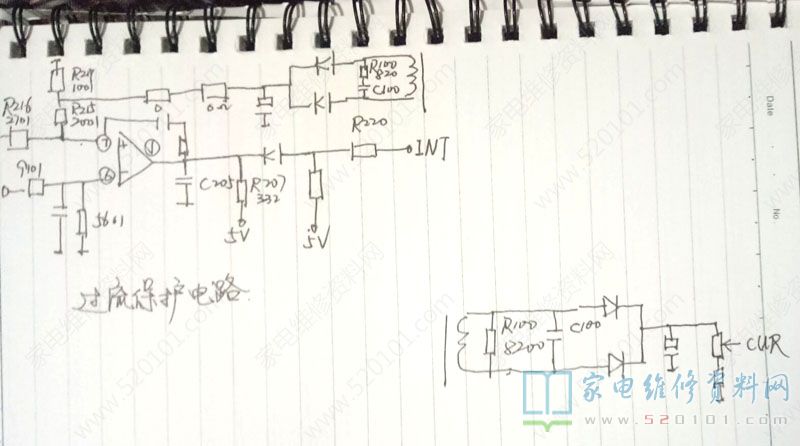 R214
1001
R100
820
C100
R216
2701
R215
2001
0
R220
INT
7
1
6
9101
5601
C205
R207
332
5V
5V
过流保护电路
R100
8200
C100
CUR
Date
No
家电维修资料网
www.520101.com